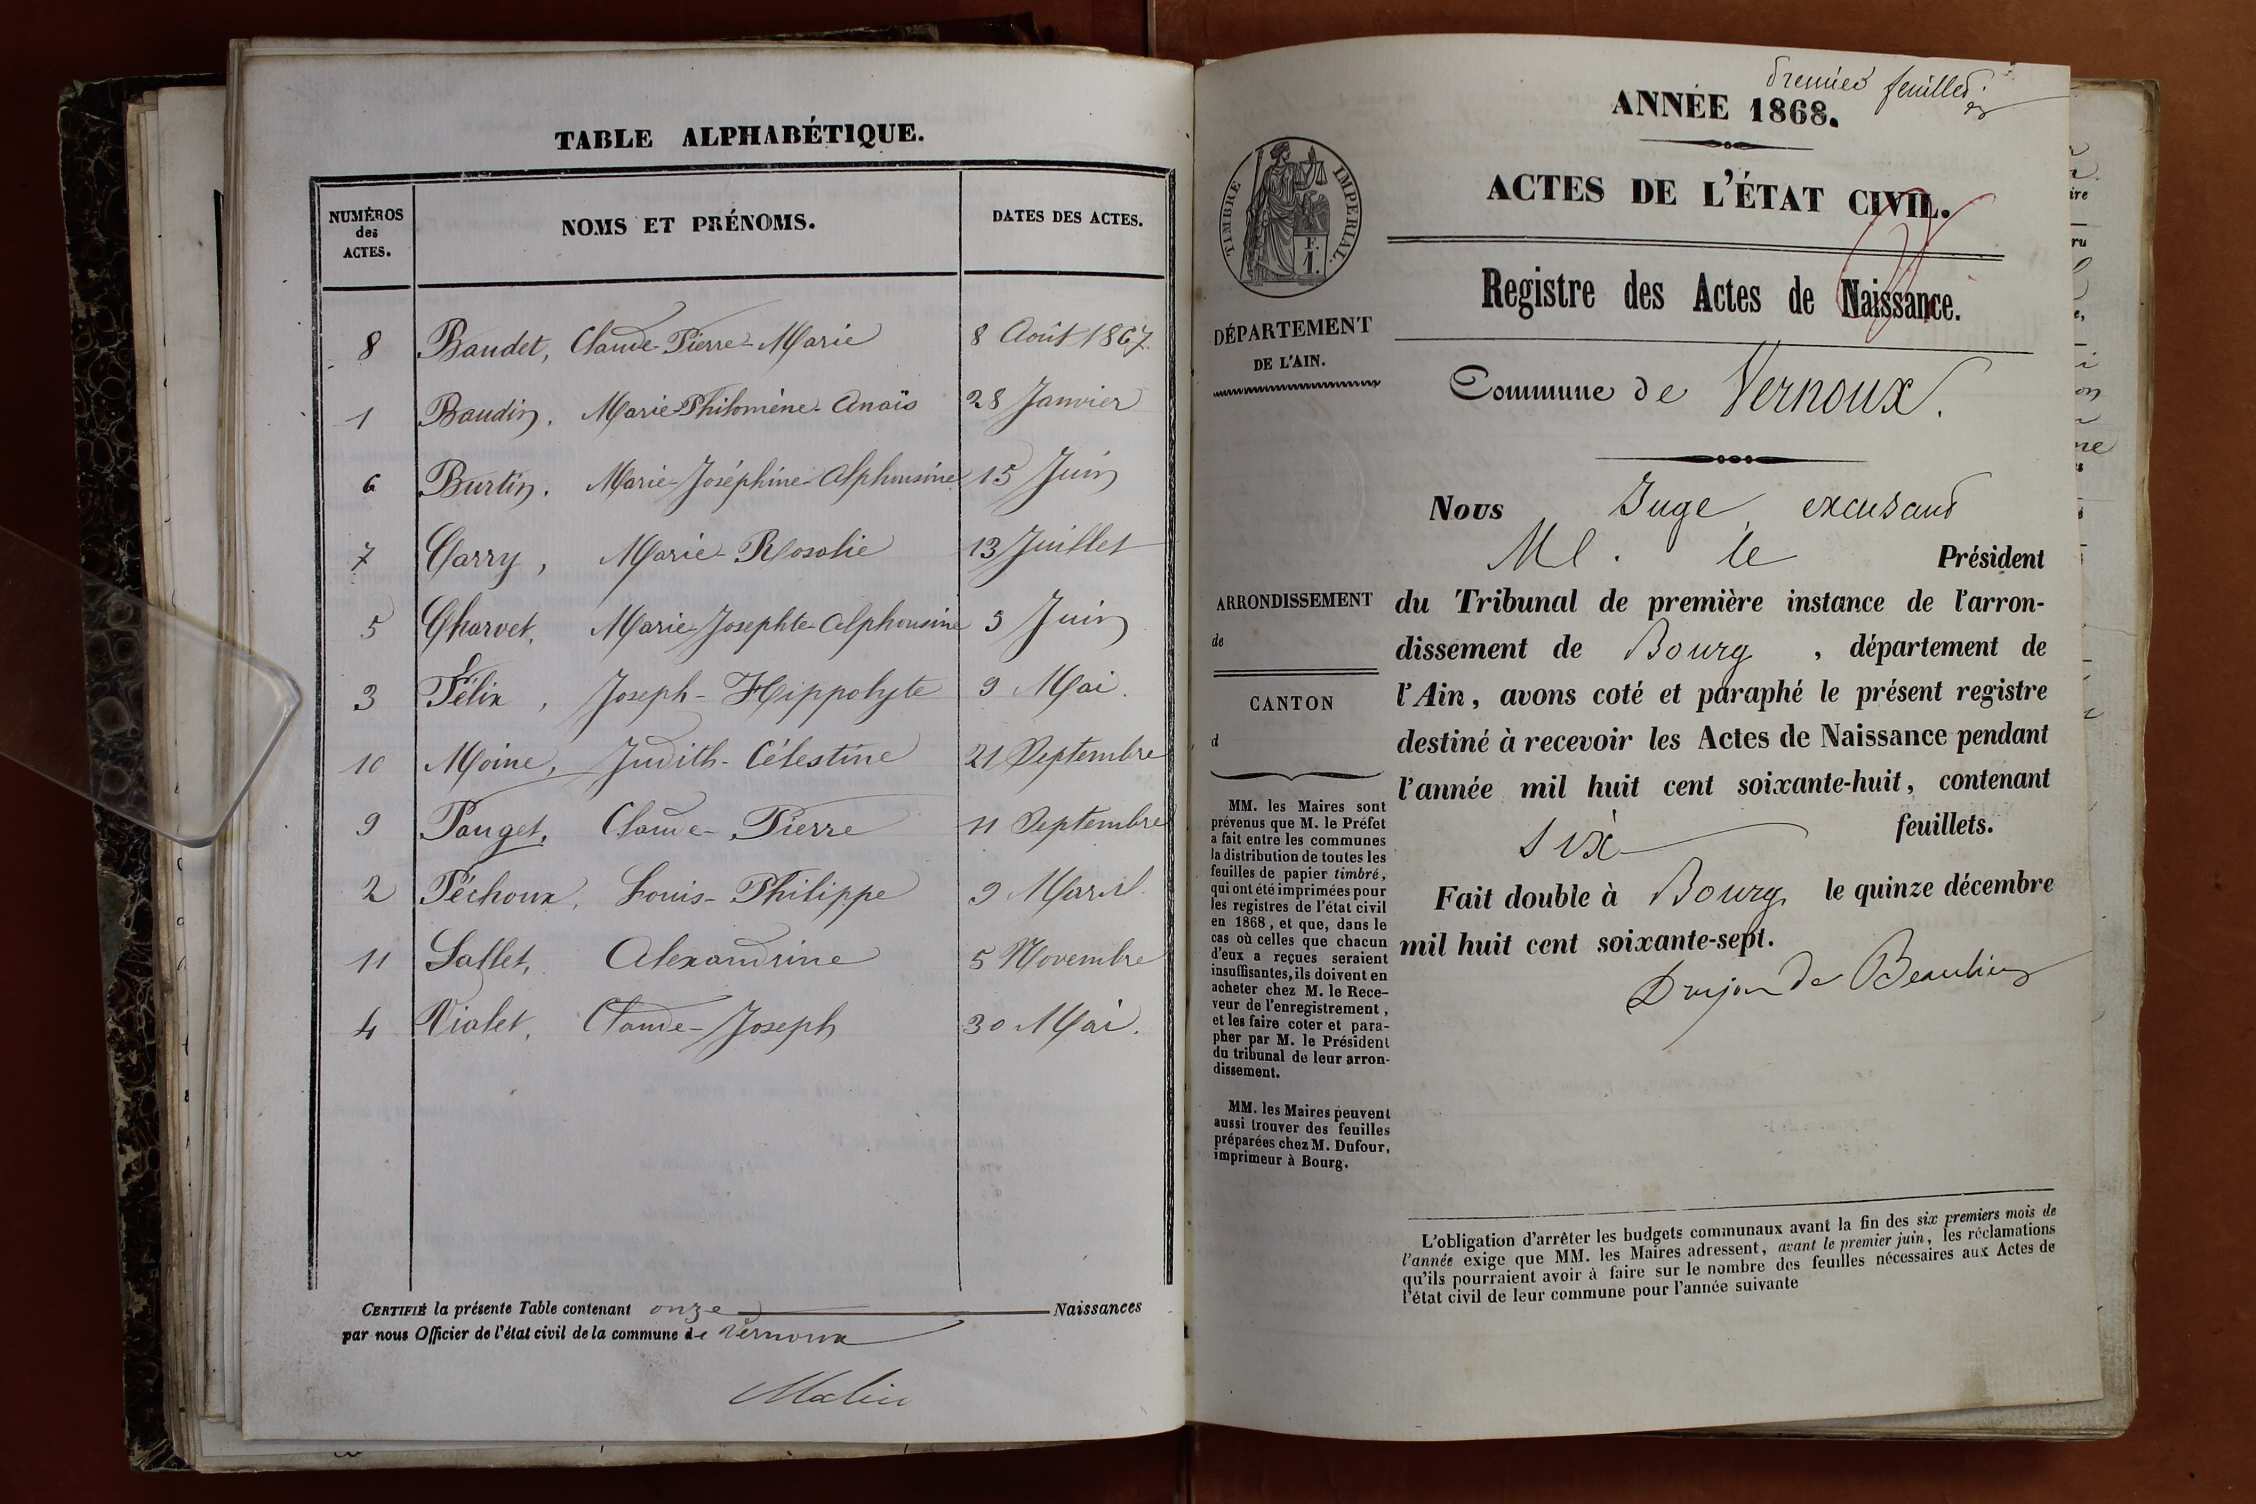 TABLE ALPHABÉTIQUE.
NUMÉROS des ACTES. NOMS ET PRÉNOMS. DATES DES ACTES.
8 Baudet, Claude-Pierre-Marie 8 Août 1867
1 Baudin, Marie-Philomène-Anaïs 28 Janvier
6 Burtin, Marie-Joséphine-Alphonsine 15 Juin
7 Carry, Marie-Rosalie 13 Juillet
5 Charvet, Marie-Josephte-Alphonsine 5 Juin
3 Félix, Joseph-Hippolyte 9 Mai.
10 Moine, Judith-Célestine 21 Septembre
9 Pauget, Claude-Pierre 11 Septembre
2 Péchoux, Louis-Philippe 9 Mars
11 Sallet, Alexandrine 5 Novembre
4 Violet, Claude-Joseph 30 Mai.
CERTIFIÉ la présente Table contenant onze Naissances
par nous Officier de l'état civil de la commune de Vernoux
premier feuillet
ANNÉE 1868.
ACTES DE L'ÉTAT CIVIL.
Registre des Actes de Naissance.
Commune de Vernoux.
TIMBRE IMPERIAL.
F.
1.
DÉPARTEMENT
DE L'AIN.
ARRONDISSEMENT
de
CANTON
d
MM. les Maires sont
prévenus que M. le Préfet
a fait entre les communes
la distribution de toutes les
feuilles de papier timbré,
qui ont été imprimées pour
les registres de l'état civil
en 1868, et que, dans le
cas où celles que chacun
d'eux a reçues seraient
insuffisantes, ils doivent en
acheter chez M. le Rece-
veur de l'enregistrement,
et les faire coter et para-
pher par M. le Président
du tribunal de leur arron-
dissement.
MM. les Maires peuvent
aussi trouver des feuilles
préparées chez M. Dufour,
imprimeur à Bourg.
Nous Juge excusant
M. le Président
du Tribunal de première instance de l'arron-
dissement de Bourg, département de
l'Ain, avons coté et paraphé le présent registre
destiné à recevoir les Actes de Naissance pendant
l'année mil huit cent soixante-huit, contenant
six feuillets.
Fait double à Bourg, le quinze décembre
mil huit cent soixante-sept.
Drujon de Beaulieu
L'obligation d'arrêter les budgets communaux avant la fin des six premiers mois de
l'année exige que MM. les Maires adressent, avant le premier juin, les réclamations
qu'ils pourraient avoir à faire sur le nombre des feuilles nécessaires aux Actes de
l'état civil de leur commune pour l'année suivante